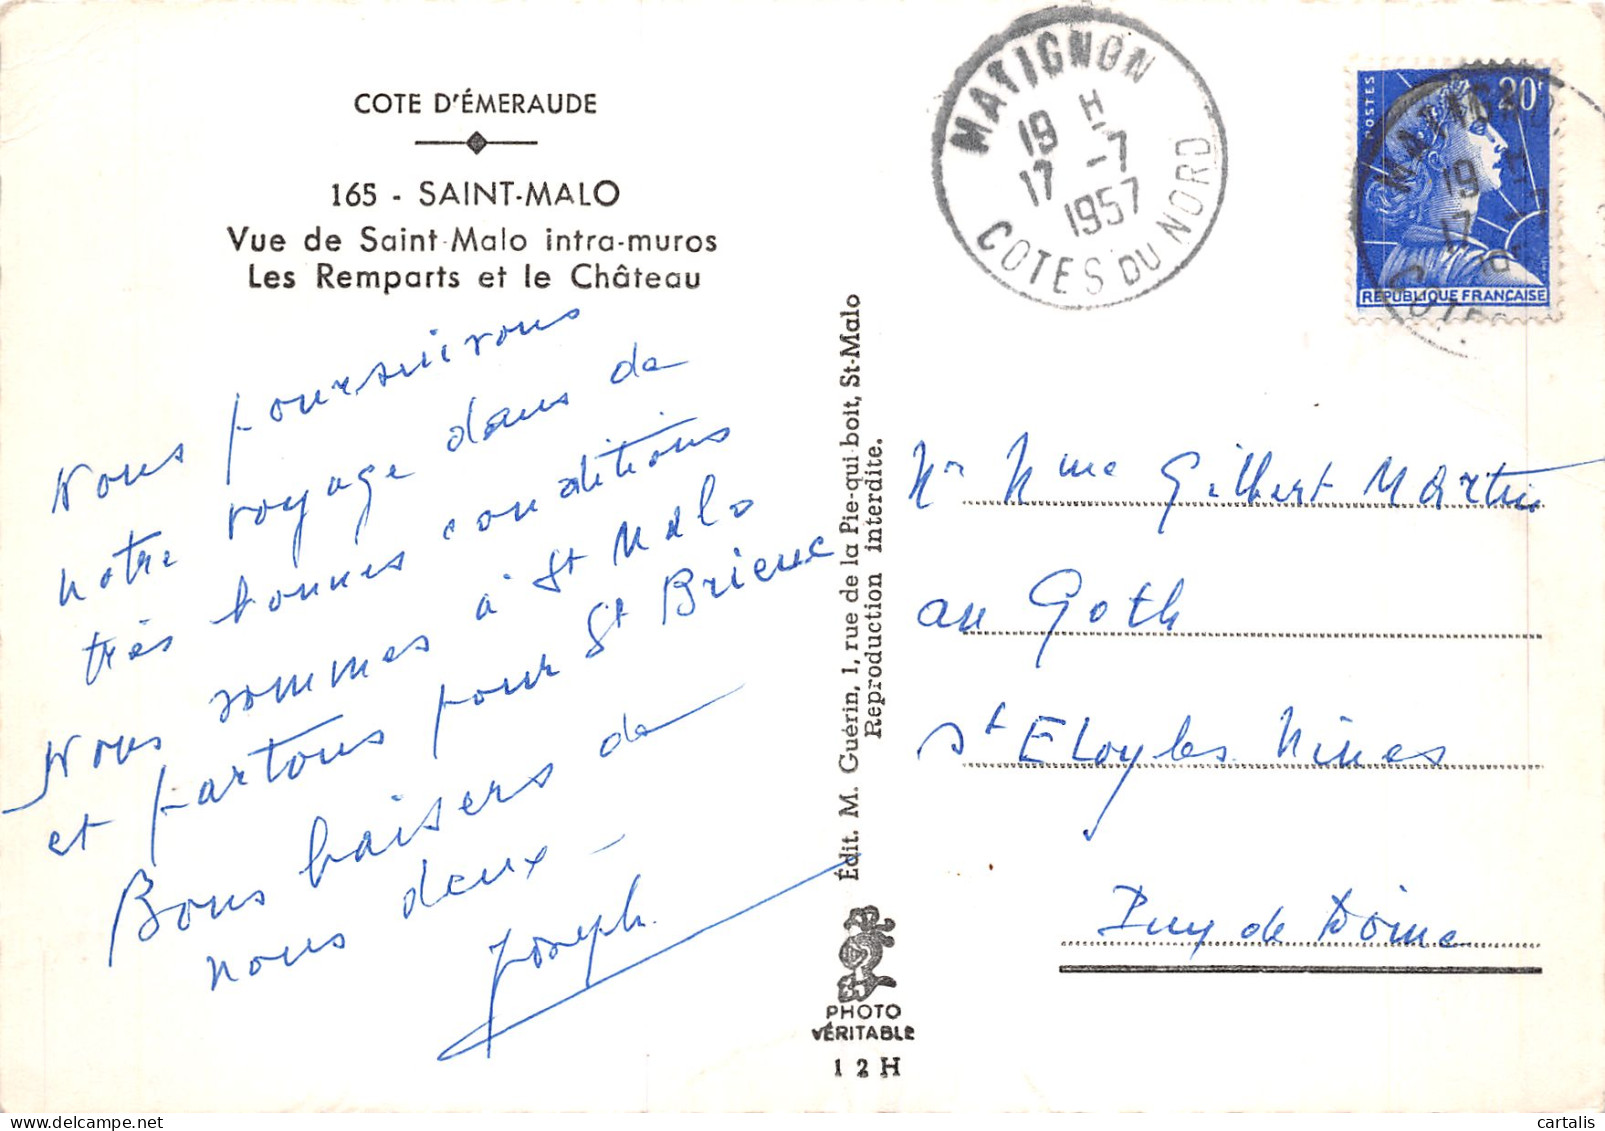 COTE D'ÉMERAUDE
165 - SAINT-MALO
Vue de Saint-Malo intra-muros
Les Remparts et le Château
Nous poursuivons
notre voyage dans de
très bonnes conditions
Nous sommes à St Malo
et partons pour St Brieuc
Bons baisers de
nous deux -
Joseph.
Édit. M. Guérin, 1, rue de la Pie-qui-boit, St-Malo
Reproduction interdite.
PHOTO
VÉRITABLE
12H
MATIGNON
19 H
17 -7
1957
COTES DU NORD
POSTES
20F
RÉPUBLIQUE FRANÇAISE
MATIGNON
19 H
17
Mr Mme Gilbert Martin
au Goth
St Eloy les Mines
Puy de Dôme
cartalis